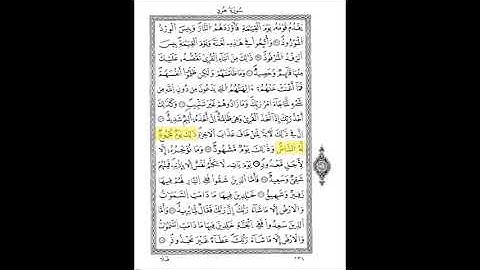 سُورَةُ هُودٍ
يَقْدُمُ قَوْمَهُ يَوْمَ الْقِيٰمَةِ فَاَوْرَدَهُمُ النَّارَ وَبِئْسَ الْوِرْدُ
الْمَوْرُودُ وَاُتْبِعُوا فِي هٰذِهِ لَعْنَةً وَيَوْمَ الْقِيٰمَةِ بِئْسَ
الرِّفْدُ الْمَرْفُودُ ذٰلِكَ مِنْ اَنْبَاءِ الْقُرٰى نَقُصُّهُ عَلَيْكَ
مِنْهَا قَائِمٌ وَحَصِيدٌ وَمَا ظَلَمْنَاهُمْ وَلٰكِنْ ظَلَمُوا اَنْفُسَهُمْ
فَمَا اَغْنَتْ عَنْهُمْ اٰلِهَتُهُمُ الَّتِي يَدْعُونَ مِنْ دُونِ اللّٰهِ مِنْ
شَيْءٍ لَمَّا جَاءَ اَمْرُ رَبِّكَ وَمَا زَادُوهُمْ غَيْرَ تَتْبِيبٍ وَكَذٰلِكَ
اَخْذُ رَبِّكَ اِذَا اَخَذَ الْقُرٰى وَهِيَ ظَالِمَةٌ اِنَّ اَخْذَهُ اَلِيمٌ شَدِيدٌ
اِنَّ فِي ذٰلِكَ لَاٰيَةً لِمَنْ خَافَ عَذَابَ الْاٰخِرَةِ ذٰلِكَ يَوْمٌ مَجْمُوعٌ
لَهُ النَّاسُ وَذٰلِكَ يَوْمٌ مَشْهُودٌ وَمَا نُؤَخِّرُهُ اِلَّا
لِاَجَلٍ مَعْدُودٍ يَوْمَ يَاْتِ لَا تَكَلَّمُ نَفْسٌ اِلَّا بِاِذْنِهِ فَمِنْهُمْ
شَقِيٌّ وَسَعِيدٌ فَاَمَّا الَّذِينَ شَقُوا فَفِي النَّارِ لَهُمْ فِيهَا
زَفِيرٌ وَشَهِيقٌ خَالِدِينَ فِيهَا مَا دَامَتِ السَّمٰوَاتُ
وَالْاَرْضُ اِلَّا مَا شَاءَ رَبُّكَ اِنَّ رَبَّكَ فَعَّالٌ لِمَا يُرِيدُ
وَاَمَّا الَّذِينَ سُعِدُوا فَفِي الْجَنَّةِ خَالِدِينَ فِيهَا مَا دَامَتِ السَّمٰوَاتُ
وَالْاَرْضُ اِلَّا مَا شَاءَ رَبُّكَ عَطَاءً غَيْرَ مَجْذُوذٍ
فَلَا